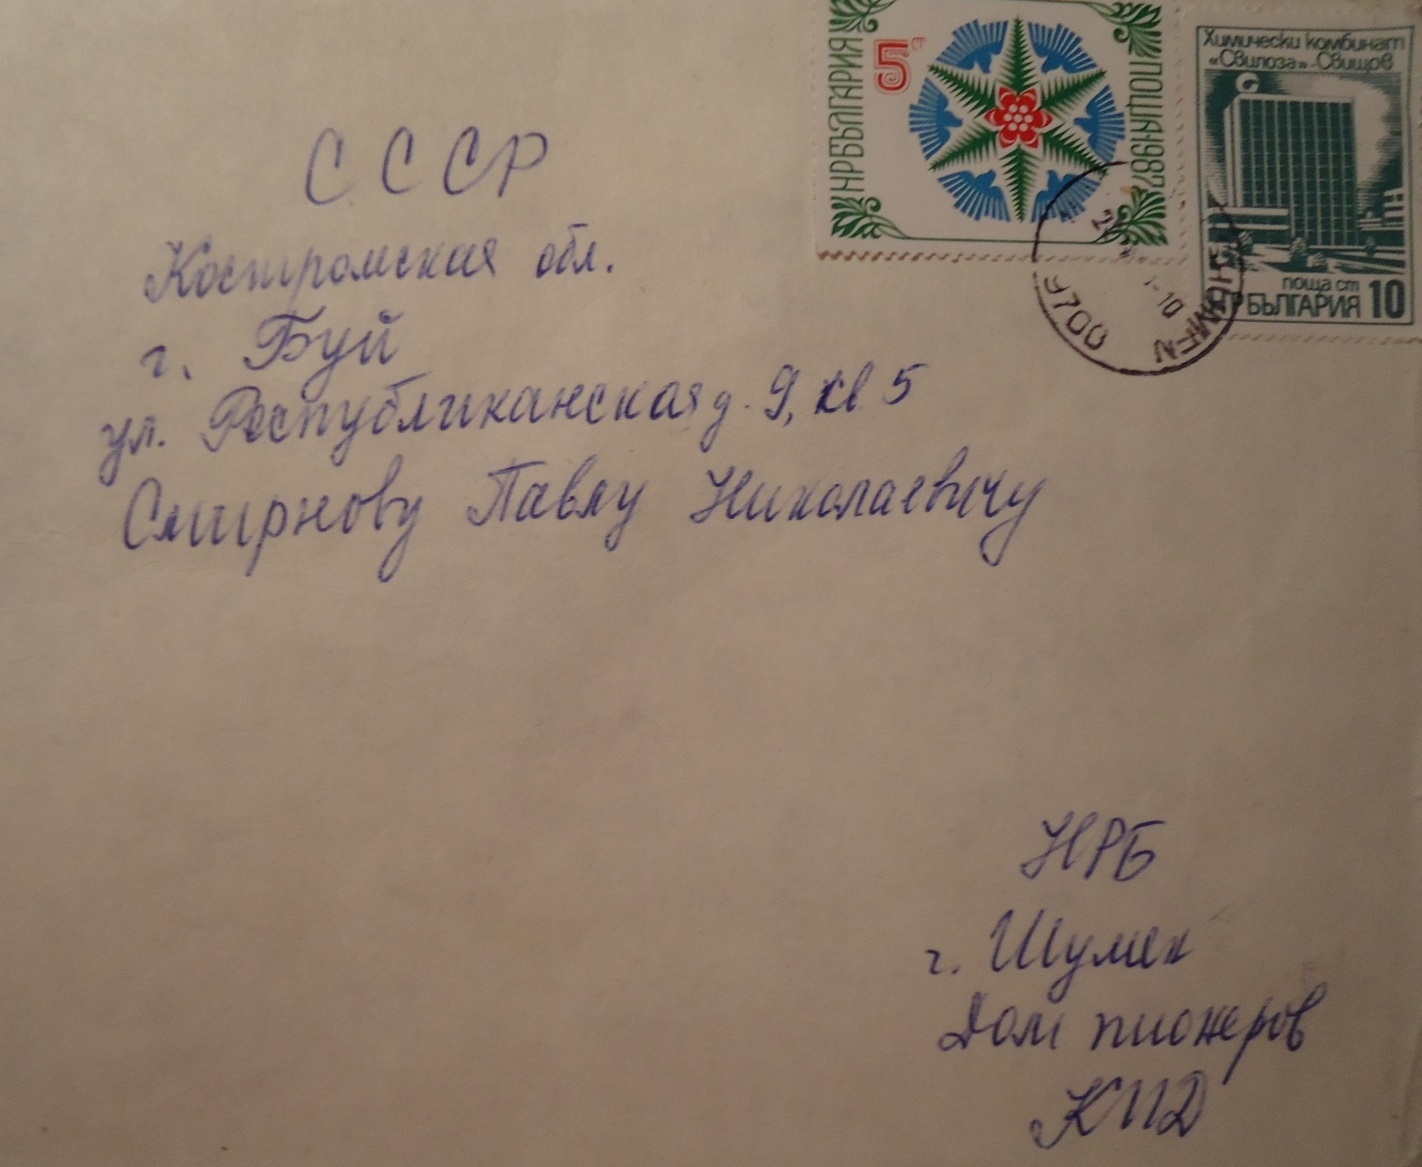 НРБЪЛГАРИЯ
5ст
ПОЩА·1987
Химически комбинат
«Свилоза»-Свищов
поща ст
БЪЛГАРИЯ 10
9700
СССР
Костромская обл.
г. Буй
ул. Республиканская д. 9, кв 5
Смирнову Павлу Николаевичу
НРБ
г. Шумен
Дом пионеров
КИД